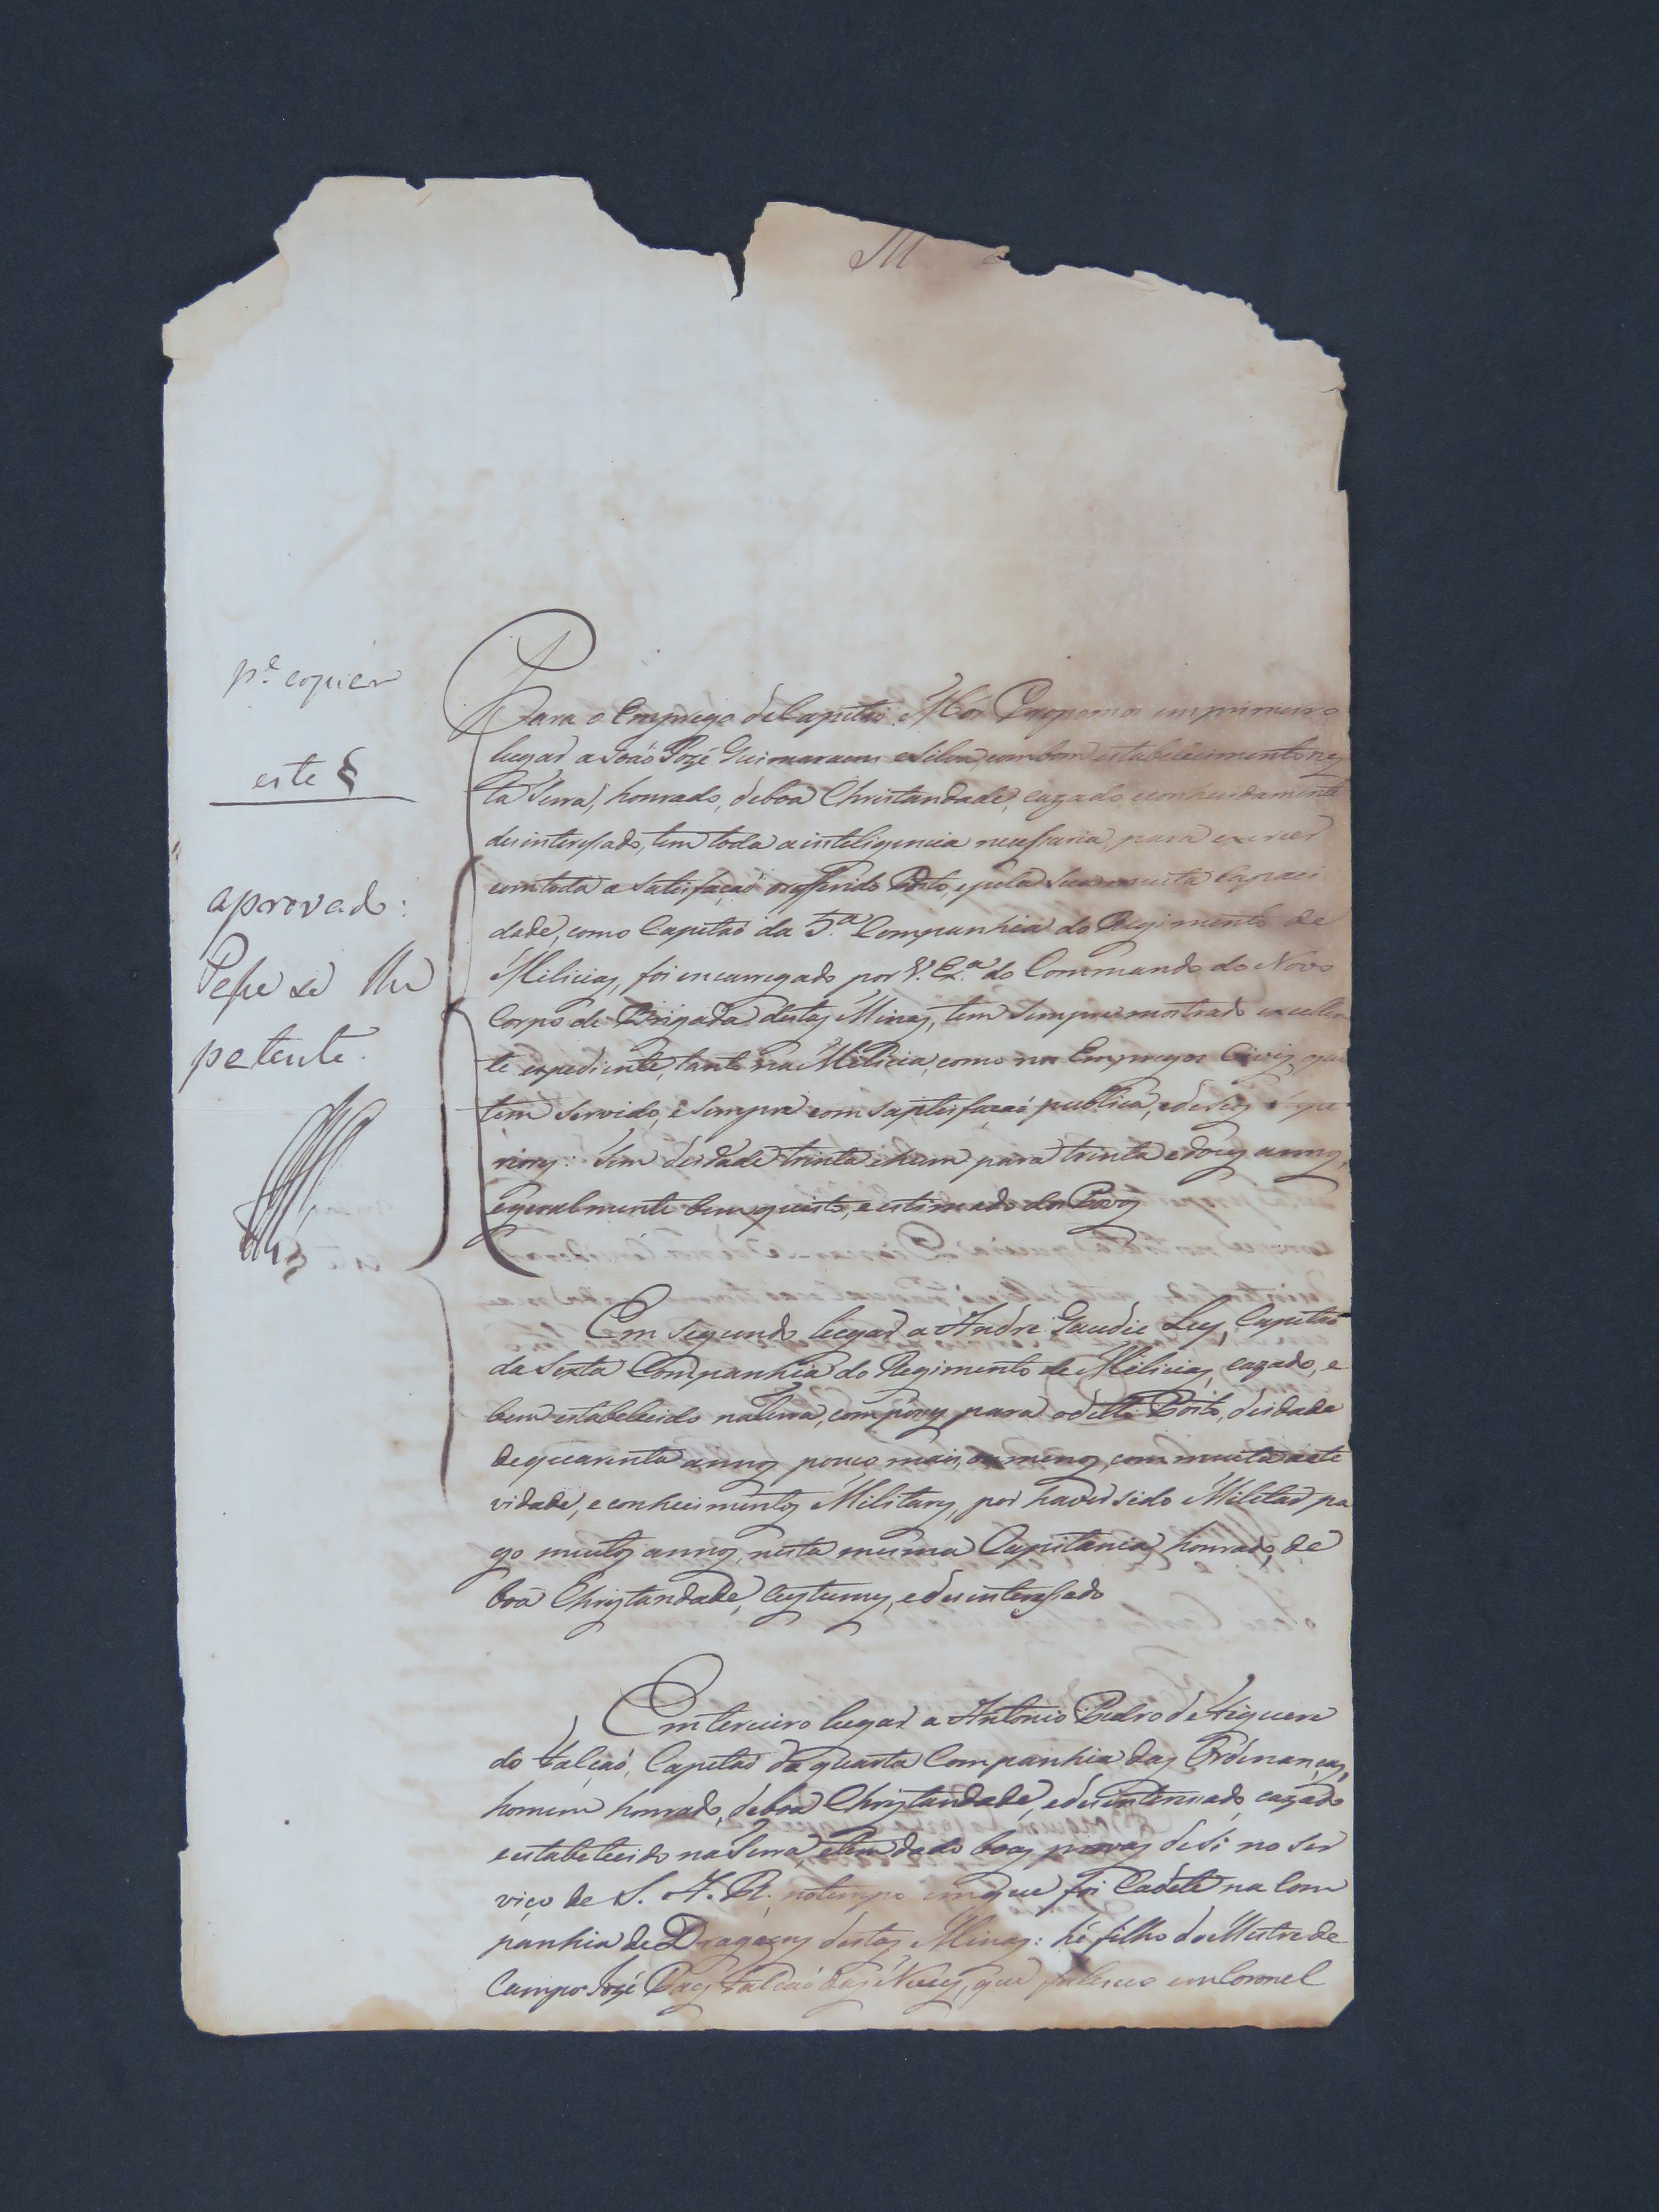 M
p.ª copiar
este §
aprovado:
Passe se lhe
patente.
Para o Emprego de Capitaõ Mor Propomos em primeiro
lugar a Joaõ Jozé Guimaraens e Silva, com bom estabelecimento nes
ta Terra, honrado, de boa Christandade, cazado, e conhecidamente
desinteressado, tem toda a inteligencia necessaria, para exercer
com toda a satisfaçaõ o refferido Posto, e pela sua muita Capaci
dade, como Capitaõ da 5.ª Companhia do Regimento de
Milicias, foi encarregado por V. Ex.ª do Commando do Novo
Corpo de Brigada destas Minas, tem sempre mostrado excellen
te expediente, tanto na Milicia, como nos Empregos Civis, que
tem servido, e sempre com saptisfaçaõ publica, e de seus Supe
riores: tem de idade trinta e hum para trinta e dous annos,
e geralmente bem quisto, e estimado dos Povos
Em segundo lugar a Andre Gaudie Ley, Capitaõ
da Sexta Companhia do Regimento de Milicias, cazado, e
bem estabelecido na Terra, com posses para o ditto Posto, de idade
de quarenta annos pouco mais, ou menos, com muita acte
vidade, e conhecimentos Militares, por haver sido Militar pa
go muitos annos, nesta mesma Capitania, honrado, de
boa Christandade, custumes, e desinteressado
Em terceiro lugar a Antonio Pedro de Figuere
do Falcaõ, Capitaõ da quarta Companhia das Ordenanças,
homem honrado, de boa Christandade, e desinteressado, cazado
e estabelecido na Terra, e tem dado boas provas de si no ser
viço de S. A. R., no tempo em que foi Cadete na Com
panhia de Dragoens destas Minas: hé filho do Mestre de
Campo Jozé Paes Falcaõ das Neves, que faleceo em Coronel